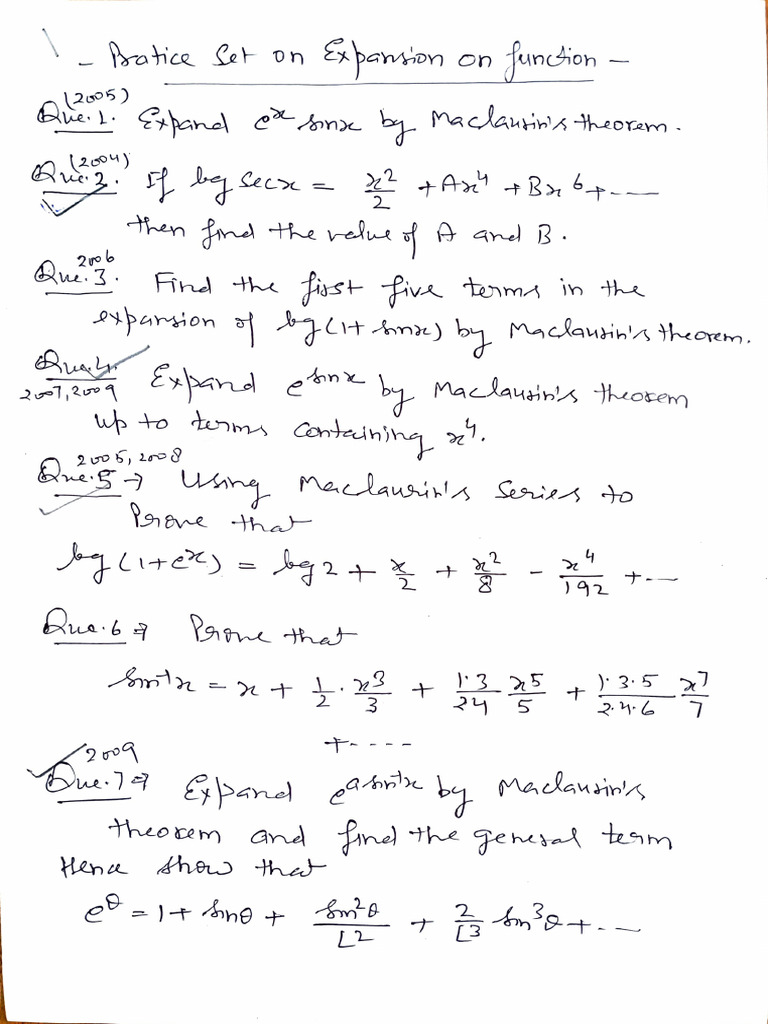 - Pratice Set on Expansion on function -
(2005)
Que.1. Expand e^x sinx by Maclaurin's theorem.
(2004)
Que.2. If log secx = x²/2 + Ax⁴ + Bx⁶ + ----
then find the value of A and B.
2006
Que.3. Find the first five terms in the
expansion of log(1+sinx) by Maclaurin's theorem.
Que.4. Expand e^sinx by Maclaurin's theorem
2007,2009
up to terms containing x⁴.
2005,2008
Que.5 → Using Maclaurin's Series to
Prove that
log(1+e^x) = log2 + x/2 + x²/8 - x⁴/192 + ---
Que.6 ⇒ Prove that
sin⁻¹x = x + 1/2 · x³/3 + 1·3/24 x⁵/5 + 1·3·5/2·4·6 x⁷/7
+ ----
2009
Que.7 ⇒ Expand e^asin⁻¹x by Maclaurin's
theorem and find the general term
Hence show that
e^θ = 1 + sinθ + sin²θ/⌊2 + 2/⌊3 sin³θ + ---